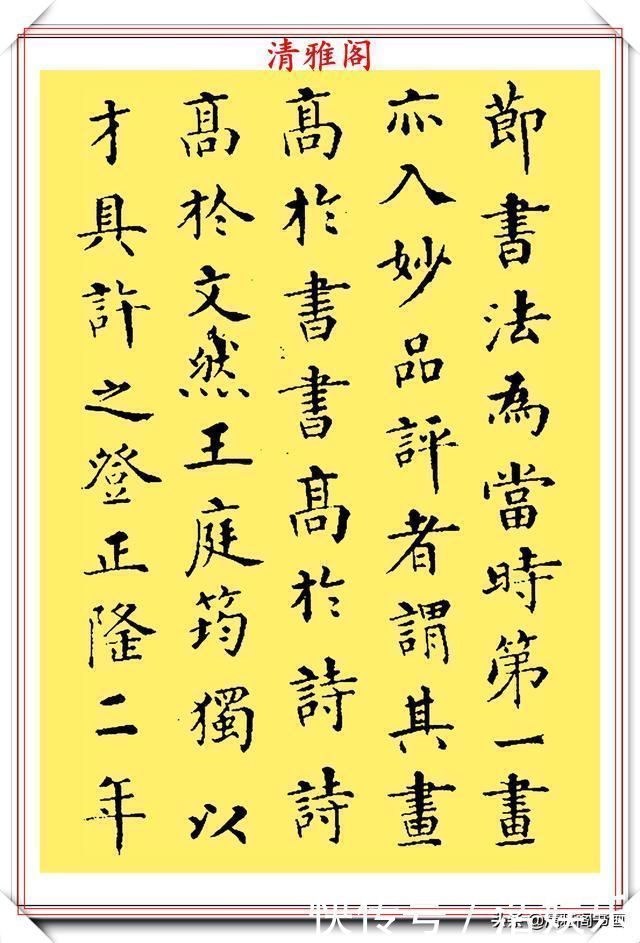 清雅阁
莭書法為當時第一畫
亦入妙品評者謂其畫
髙於書書髙於詩詩
髙於文然王庭筠獨以
才具許之登正隆二年
快传号 /